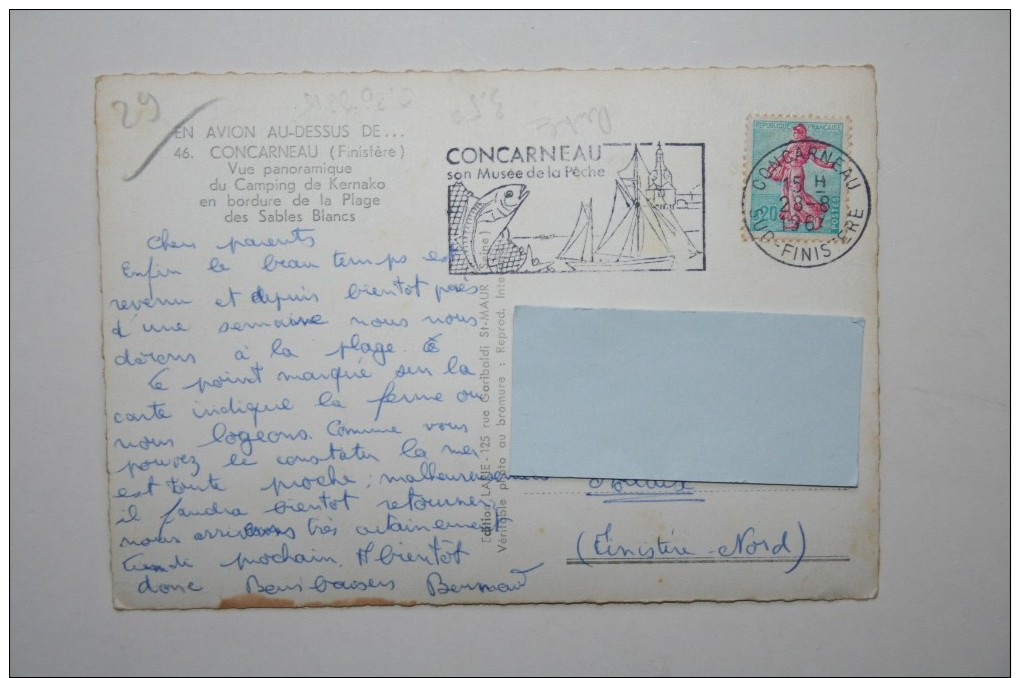 29
EN AVION AU-DESSUS DE...
46. CONCARNEAU (Finistère)
Vue panoramique
du Camping de Kernako
en bordure de la Plage
des Sables Blancs
CONCARNEAU
son Musée de la Pêche
REPUBLIQUE FRANÇAISE
POSTES
CONCARNEAU
15 H
28-8
SUD-FINISTERE
Chers parents
Enfin le beau temps est
revenu et depuis bientôt près
d'une semaine nous nous
dorons à la plage.
Le point marqué sur la
carte indique la ferme où
nous logeons. Comme vous
pouvez le constater la mer
est toute proche; malheureusement
il faudra bientôt retourner
nous arriverons très certainement
prochain. A bientôt
donc Bons baisers Bernard
Edition LAPIE - 125 rue Garibaldi St-MAUR (Seine)
Véritable photo au bromure : Reprod. Inte
(Finistère-Nord)